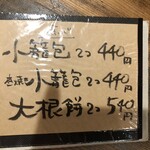 小籠包 2コ 440円
小籠包 2コ 440円
大根餅 2コ 540円